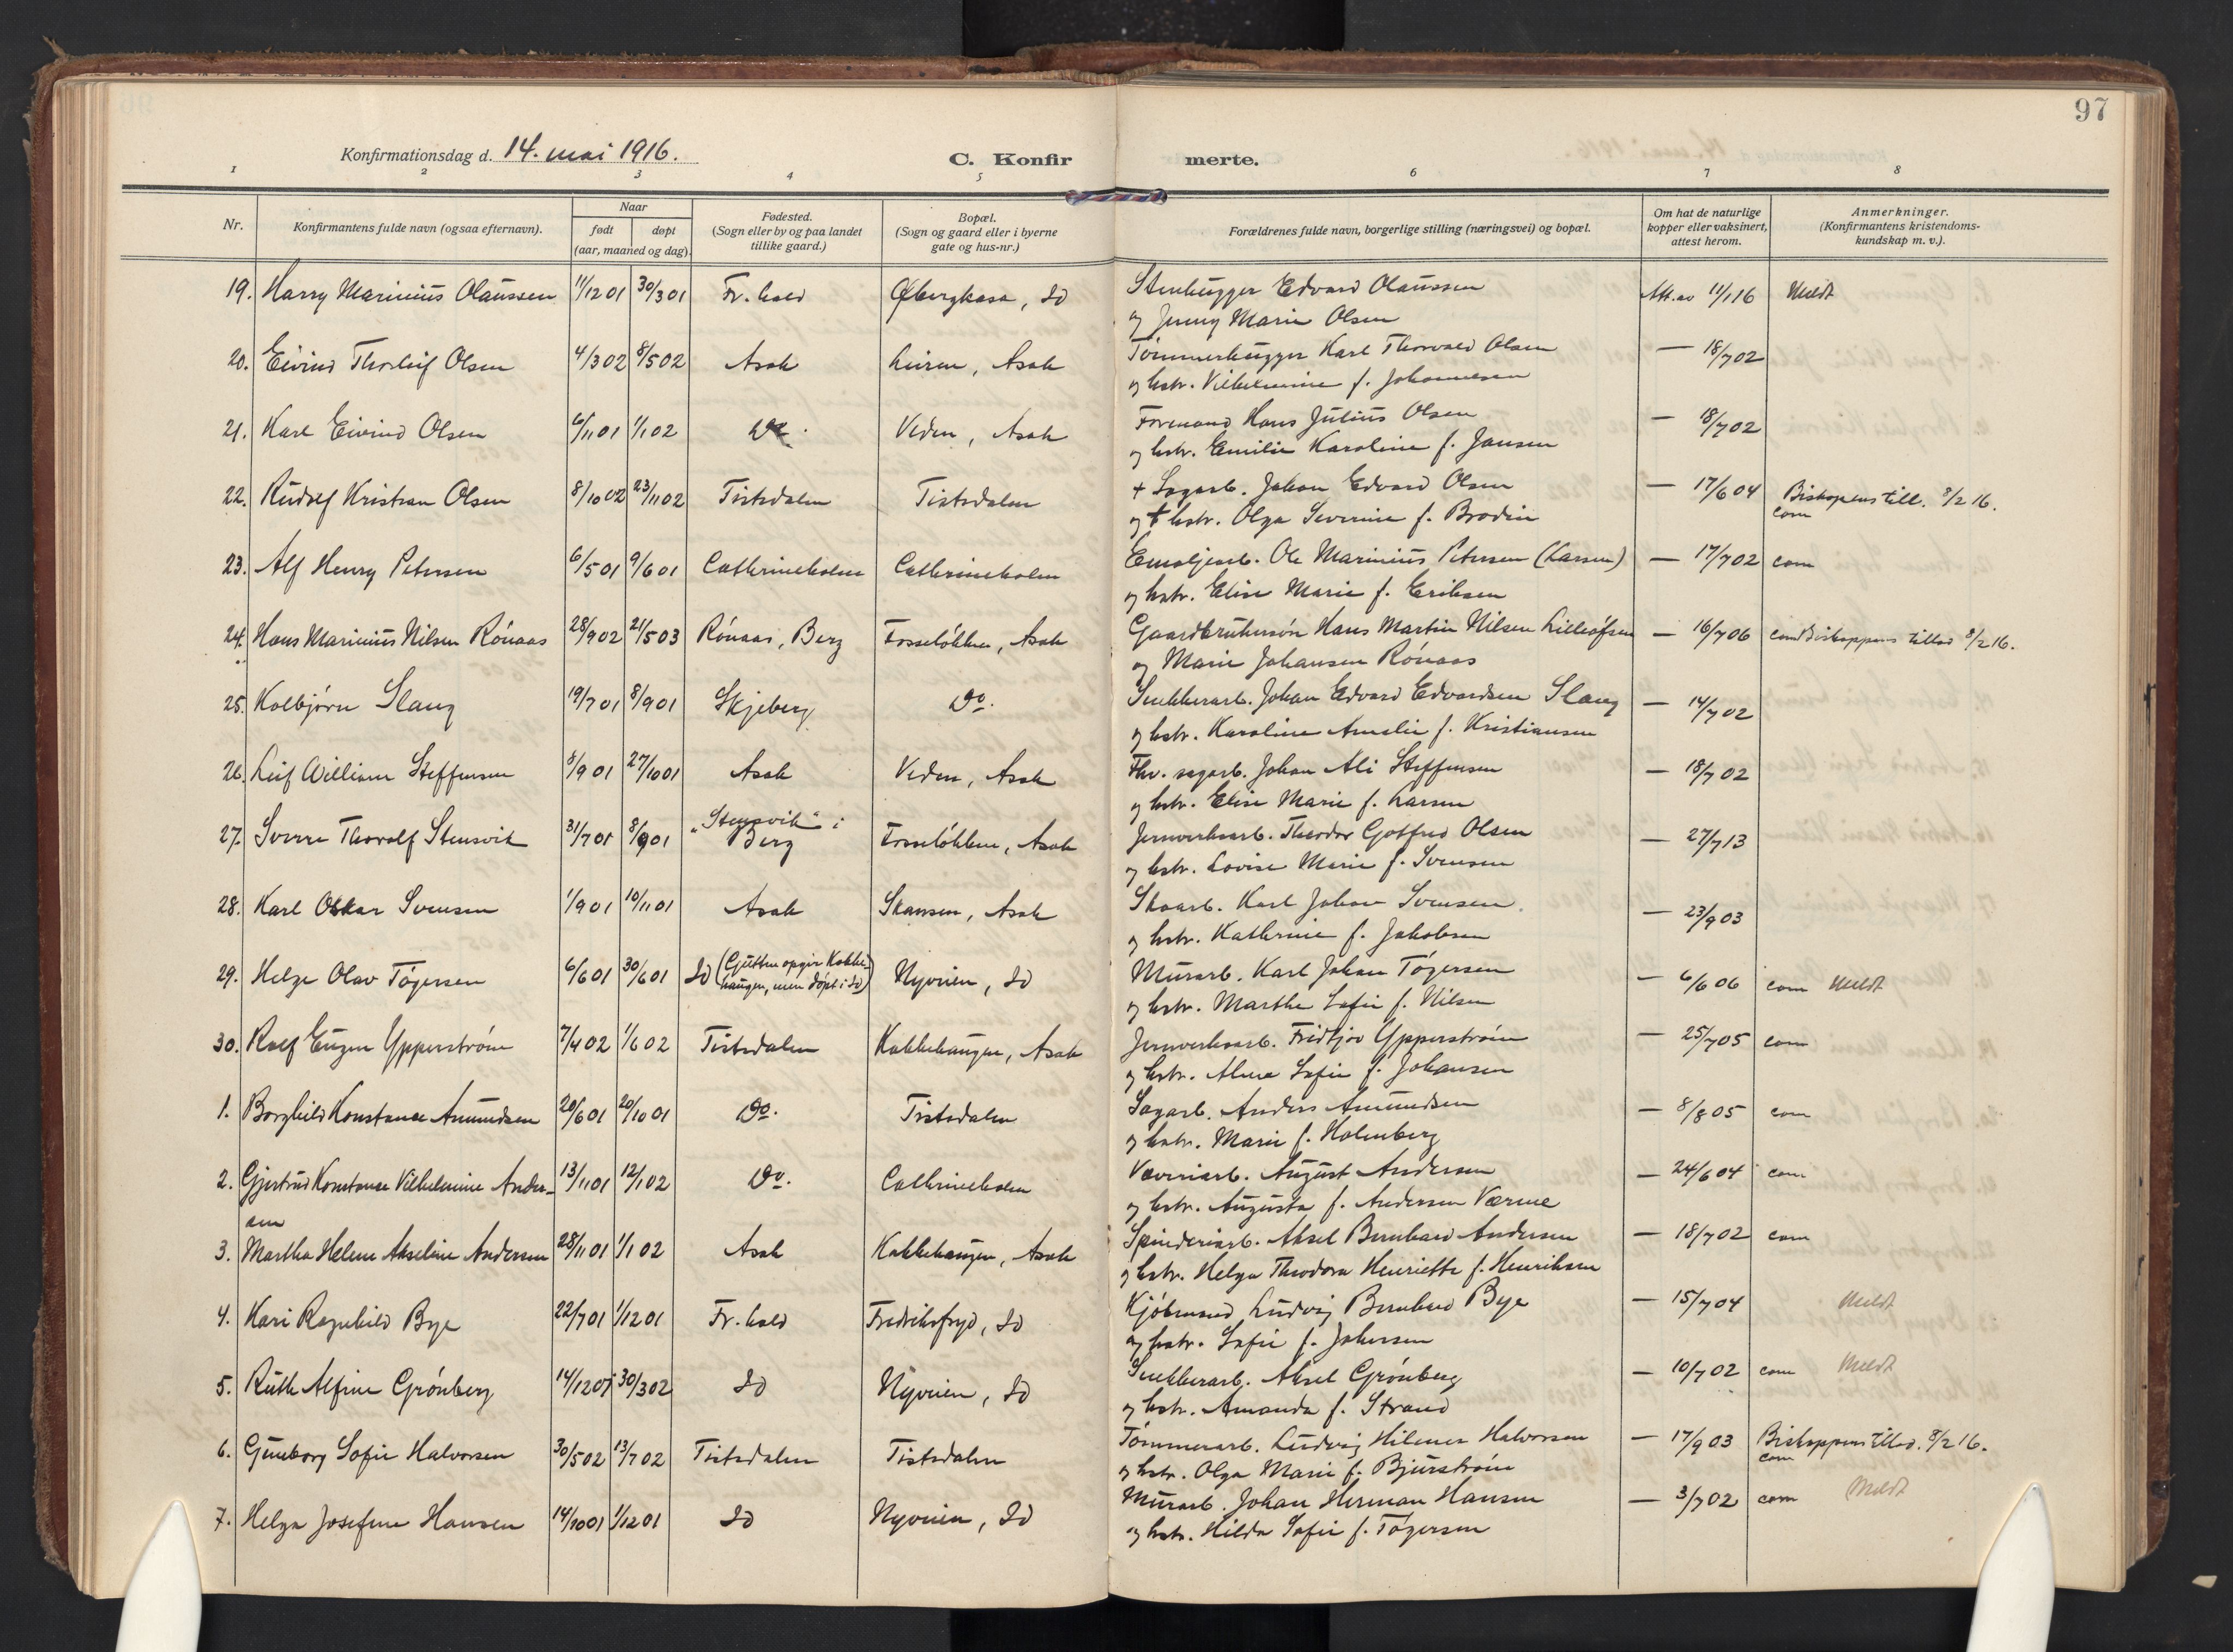 97
Konfirmationsdag d. 14. mai 1916.
C. Konfir merte.
1 2 3 4 5 6 7 8
Nr.
Konfirmantens fulde navn (ogsaa efternavn).
Naar
født døpt
(aar, maaned og dag).
Fødested.
(Sogn eller by og paa landet
tillike gaard.)
Bopæl.
(Sogn og gaard eller i byerne
gate og hus-nr.)
Forældrenes fulde navn, borgerlige stilling (næringsvei) og bopæl.
Om hat de naturlige
kopper eller vaksinert,
attest herom.
Anmerkninger.
(Konfirmantens kristendoms-
kundskap m. v.).
19. Harry Marinius Olaussen 11/1201 30/301 Fr.hald Øbergkasa, Id Stenhugger Edvard Olaussen Att. av 11/116 Meldt
og Jenny Marie Olsen
20. Eivind Thorleif Olsen 4/302 8/502 Asak Leiren, Asak Tømmerhugger Karl Thorvald Olsen — 18/702
og hstr. Vilhelmine f. Johannesen
21. Karl Eivind Olsen 6/1101 1/102 Do. Veden, Asak Formand Hans Julius Olsen — 18/702
og hstr. Emilie Karoline f. Jansen
22. Rudolf Kristian Olsen 8/1002 23/1102 Tistedalen Tistedalen + Sagarb. Johan Edvard Olsen — 17/604 Biskopens till. 8/2 16.
com
og + hstr. Olga Severine f. Brodin
23. Alf Henry Petersen 6/501 9/601 Cathrineholm Cathrineholm Emaljearb. Ole Marinius Petersen (Larsen) — 17/702 com
og hstr. Elise Marie f. Eriksen
24. Hans Marinius Nilsen Rónaas 28/902 21/503 Rónaas, Berg Fosseløkken, Asak Gaardbrukersøn Hans Martin Nilsen — 16/706 com Biskoppens tillad 8/2 16.
og Marie Johansen Rónaas
25. Kolbjørn Slang 19/701 8/901 Skjeberg Do. Snekkerarb. Johan Edvard Edvardsen Slang — 14/702
og hstr. Karoline Amalie f. Kristiansen
26. Leif William Steffensen 8/901 27/1001 Asak Veden, Asak Fhv. sagarb. Johan Ali Steffensen — 18/702
og hstr. Elise Marie f. Larsen
27. Sverre Thoralf Stensvik 31/701 8/901 "Stensvik" i
Berg Fosseløkken, Asak Jernverksarb. Theodor Gotfred Olsen — 27/713
og hstr. Lovise Marie f. Svensen
28. Karl Oskar Svensen 1/901 10/1101 Asak Skansen, Asak Skoarb. Karl Johan Svensen — 23/903
og hstr. Kathrine f. Jakobsen
29. Helge Olav Tøgersen 6/601 30/601 Id (Gutten opgir Kokke-
haugen, men døpt i Id) Nyveien, Id Murarb. Karl Johan Tøgersen — 6/606 com Meldt
og hstr. Marthe Sofie f. Nilsen
30. Rolf Eugen Ypperstrøm 7/402 1/602 Tistedalen Kokkehaugen, Asak Jernverksarb. Fridtjov Ypperstrøm — 25/705 com
og hstr. Alma Sofie f. Johansen
1. Borghild Konstanse Amundsen 20/601 20/1001 Do. Tistedalen Sagarb. Anders Amundsen — 8/805 com
og hstr. Marie f. Holmberg
2. Gjertrud Konstanse Vilhelmine Ander-
sen 13/1101 12/102 Do. Cathrineholm Væveriarb. August Andersen — 24/604 com
og hstr. Augusta f. Andersen Værme
3. Martha Helene Akseline Andersen 28/1101 1/102 Asak Kokkehaugen, Asak Spinderiarb. Aksel Bernhard Andersen — 18/702 com
og hstr. Helga Theodora Henriette f. Henriksen
4. Kari Ragnhild Bye 22/701 1/1201 Fr.hald Fredriksfryd, Id Kjøbmand Ludvig Bernhard Bye — 15/704 Meldt
og hstr. Sofie f. Johansen
5. Ruth Alfine Grónberg 14/1201 30/302 Id Nyveien, Id Snekkerarb. Aksel Grónberg — 10/702 com Meldt
og hstr. Amanda f. Strand
6. Gunborg Sofie Halvorsen 30/502 13/702 Tistedalen Tistedalen Tømmerarb. Ludvig Hilmer Halvorsen — 17/903 Biskoppens tillad. 8/2 16.
com
og hstr. Olga Marie f. Bjurstrøm
7. Helga Josefine Hansen 14/1001 1/1201 Id Nyveien, Id Murarb. Johan Herman Hansen — 3/702 com Meldt
og hstr. Hilda Sofie f. Tøgersen